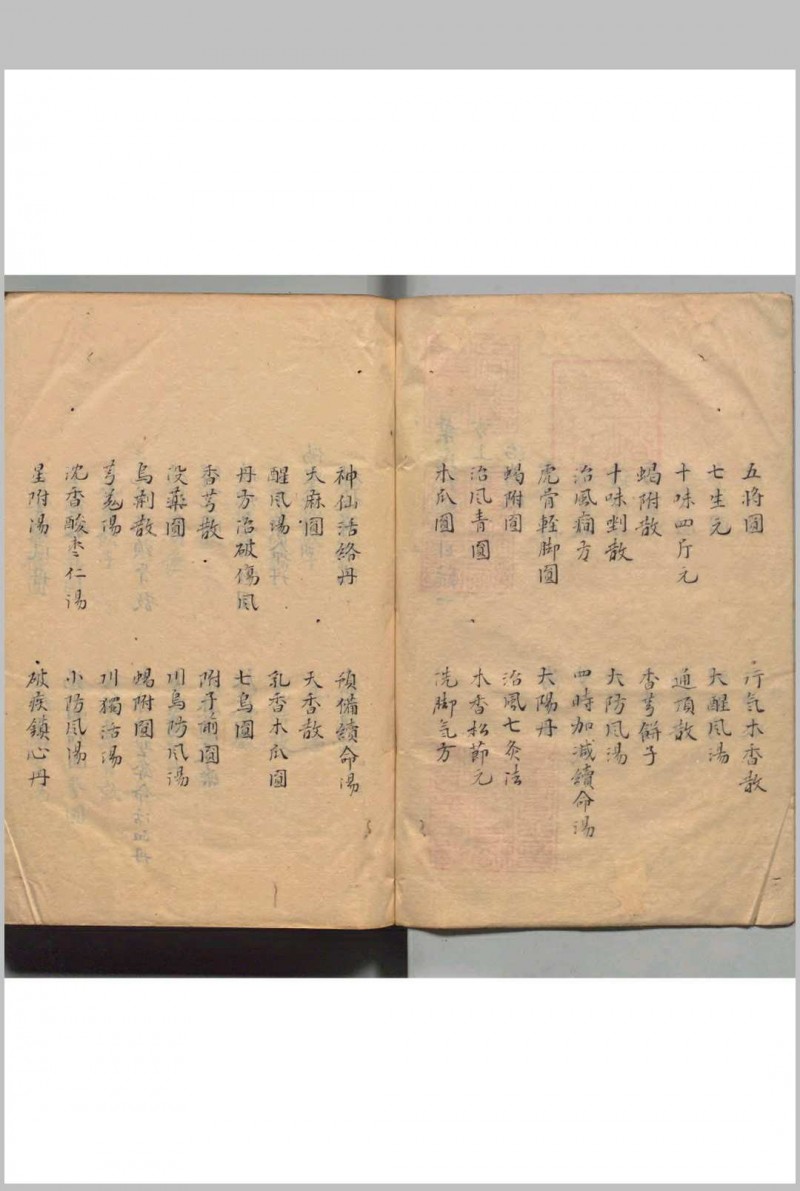 五將圓 行气木香散
七生元 大醒風湯
十味四斤元 通頂散
蝎附散 香芎餅子
十味剉散 大防風湯
治風癎方 四時加减續命湯
虎骨輕脚圓 大陽丹
蝎附圓 治風七灸法
治風青圓 木香松節元
木瓜圓 洗脚气方
神仙活絡丹 預備續命湯
天麻圓 天香散
醒風湯 乳香木瓜圓
丹方治破傷風 七烏圓
香芎散 附子煎圓
没藥圓 川烏防風湯
烏荆散 蝎附圓
芎羌湯 川獨活湯
沈香酸枣仁湯 小防風湯
星附湯 破痰鎮心丹